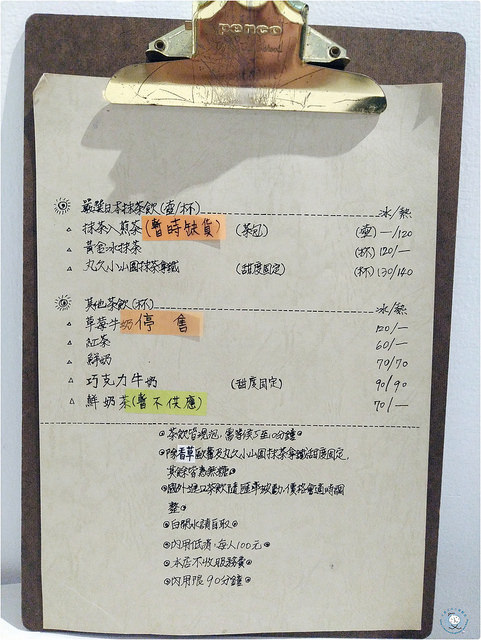 penco
嚴選日本抹茶飲(壺/杯) 冰/熱
抹茶入煎茶(暫時缺貨) (茶包) (壺)—/120
黃金冰抹茶 (杯)120/—
丸久小山園抹茶拿鐵 (甜度固定) (杯)130/140
其他茶飲(杯) 冰/熱
草莓牛奶停 售 120/—
紅茶 60/—
鮮奶 70/70
巧克力牛奶 (甜度固定) 90/90
鮮奶茶(暫不供應) 70/—
茶飲皆現泡,需等候5至10分鐘
除香草歐蕾及丸久小山園抹茶拿鐵甜度固定,
其餘皆為無糖
國外進口茶飲隨匯率波動,價格會適時調
整
白開水請自取
內用低消,每人100元
本店不收服務費
內用限90分鐘